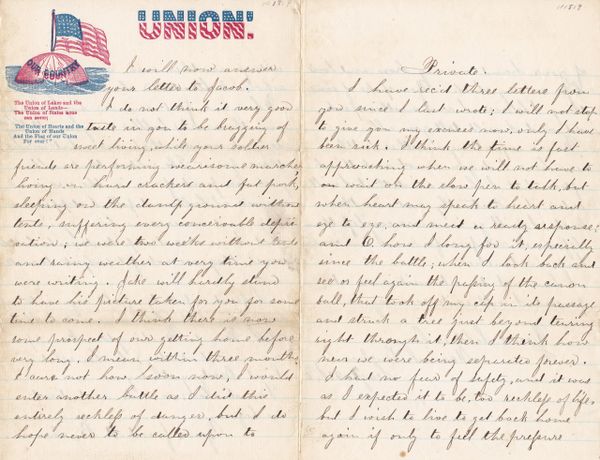 UNION!
OUR COUNTRY
The Union of Lakes and the
Union of Lands—
The Union of States none
can sever;
The Union of Hearts and the
Union of Hands
And the Flag of our Union
For ever!"
I will now answer
your letter to Jacob.
I do not think it very good
taste in you to be bragging of
sweet living, while your soldier
friends are performing wearisome marches
living on hard crackers and fat pork,
sleeping on the damp ground without
tents, suffering every conceivable depri-
vation; we were two weeks without tents
and rainy weather at very time you
were writing. Jake will hardly stand
to have his picture taken for you for some
time to come. I think there is now
some prospect of our getting home before
very long. I mean within three months,
I care not how soon now, I would
enter another battle as I did this
entirely reckless of danger, but I do
hope never to be called upon to
Private.
I have rec'd three letters from
you since I last wrote; I will not stop
to give you my excuses now, only I have
been sick. I think the time is fast
approaching when we will not have to
wait on the slow pen to talk, but
when heart may speak to heart and
eye to eye, and meet a ready response;
and O, how I long for it, especially
since the battle; when I look back and
see or feel again the passing of the canon
ball, that took off my cap in its passage
and struck a tree just beyond tearing
right through it, then I think how
near we were being separated forever.
I had no fear of safety, and it was
as I expected it to be, too reckless of life,
but I wish to live to get back home
again if only to feel the pressure